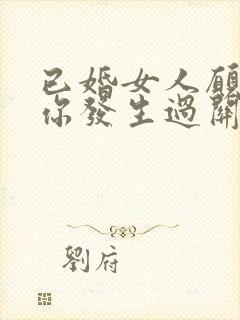 已婚女人願
你發生過關
劉府